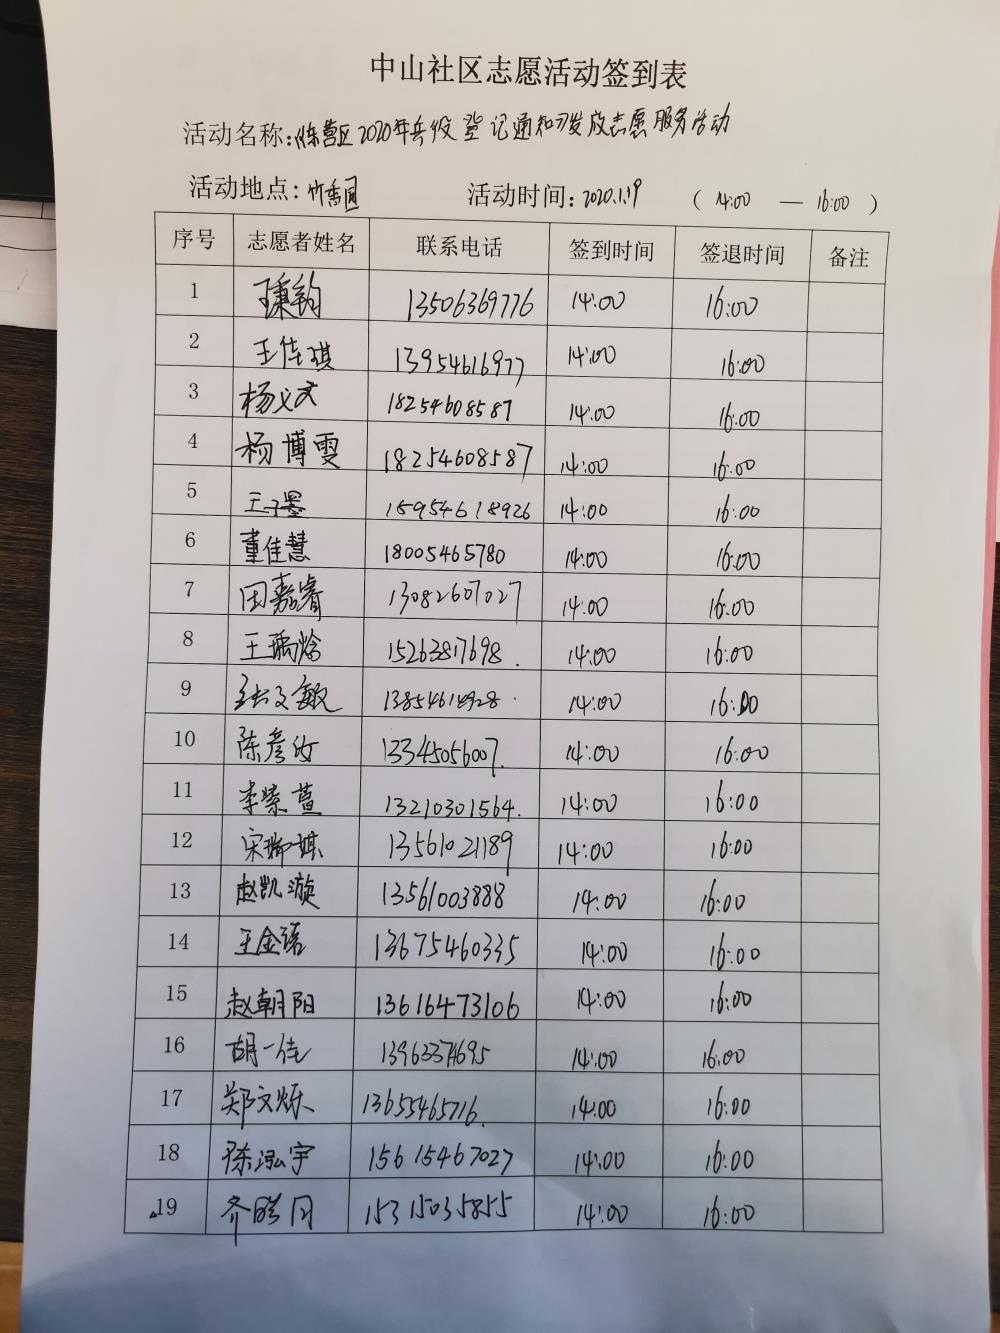 中山社区志愿活动签到表
活动名称:东营区2020年兵役登记通知发放志愿服务活动
活动地点: 竹香园 活动时间: 2020.1.19 ( 14:00 — 16:00 )
序号 志愿者姓名 联系电话 签到时间 签退时间 备注
1 王秉钧 13506369776 14:00 16:00
2 王佳琪 13954616977 14:00 16:00
3 杨义文 18254608587 14:00 16:00
4 杨博雯 18254608587 14:00 16:00
5 王子墨 15954618926 14:00 16:00
6 董佳慧 18005465780 14:00 16:00
7 田嘉睿 13082607027 14:00 16:00
8 王瑀焓 15263817698. 14:00 16:00
9 张文敏 14:00 16:00
10 陈彦 13345056007. 14:00 16:00
11 李紫萱 13210301564. 14:00 16:00
12 宋琪 13561021189 14:00 16:00
13 赵凯漩 13561003888 14:00 16:00
14 王金诺 13675460335 14:00 16:00
15 赵朝阳 13616473106 14:00 16:00
16 胡一佳 13963374695 14:00 16:00
17 郑文烁 13655465716. 14:00 16:00
18 陈泓宇 15615467027 14:00 16:00
19 齐月 15315035855 14:00 16:00